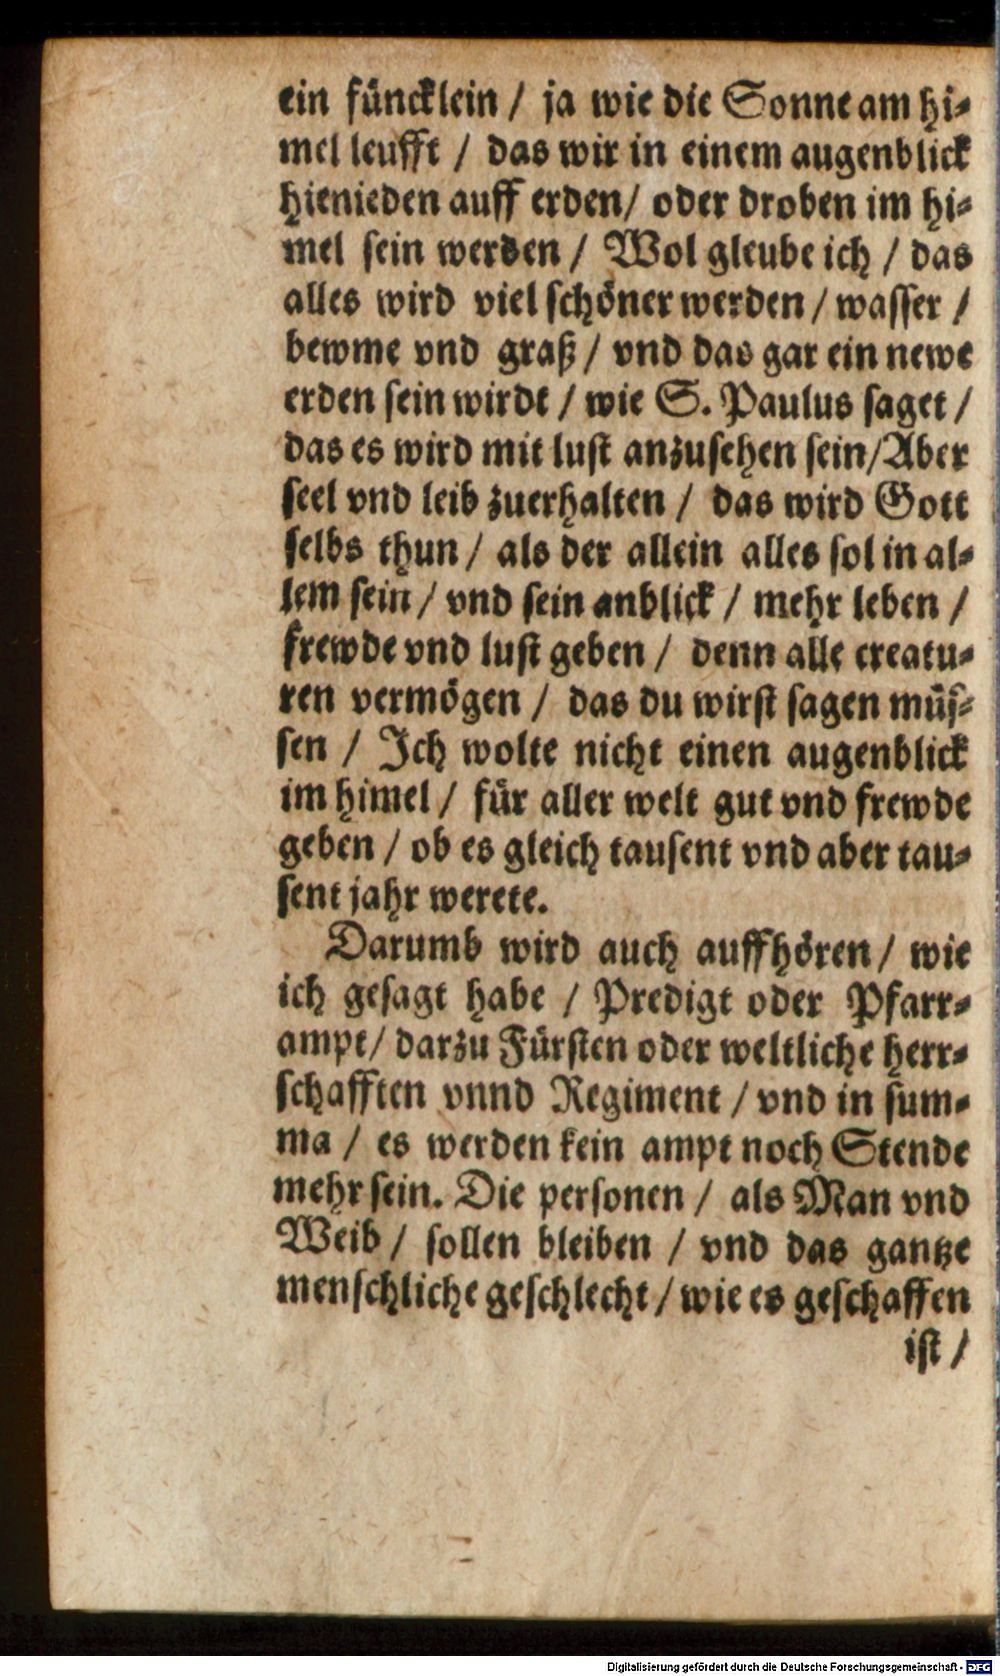 ein füncklein / ja wie die Sonne am hi-
mel leufft / das wir in einem augenblick
hienieden auff erden / oder droben im hi-
mel sein werden / Wol gleube ich / das
alles wird viel schöner werden / wasser /
bewme vnd graß / vnd das gar ein newe
erden sein wirdt / wie S. Paulus saget /
das es wird mit lust anzusehen sein / Aber
seel vnd leib zuerhalten / das wird Gott
selbs thun / als der allein alles sol in al-
lem sein / vnd sein anblick / mehr leben /
frewde vnd lust geben / denn alle creatu-
ren vermögen / das du wirst sagen müs-
sen / Ich wolte nicht einen augenblick
im himel / für aller welt gut vnd frewde
geben / ob es gleich tausent vnd aber tau-
sent jahr werete.
Darumb wird auch auffhören / wie
ich gesagt habe / Predigt oder Pfarr-
ampt / darzu Fürsten oder weltliche herr-
schafften vnnd Regiment / vnd in sum-
ma / es werden kein ampt noch Stende
mehr sein. Die personen / als Man vnd
Weib / sollen bleiben / vnd das gantze
menschliche geschlecht / wie es geschaffen
ist /
Digitalisierung gefördert durch die Deutsche Forschungsgemeinschaft - DFG